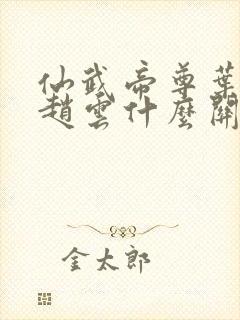 仙武帝尊葉
趙雲什麼關
金太郎